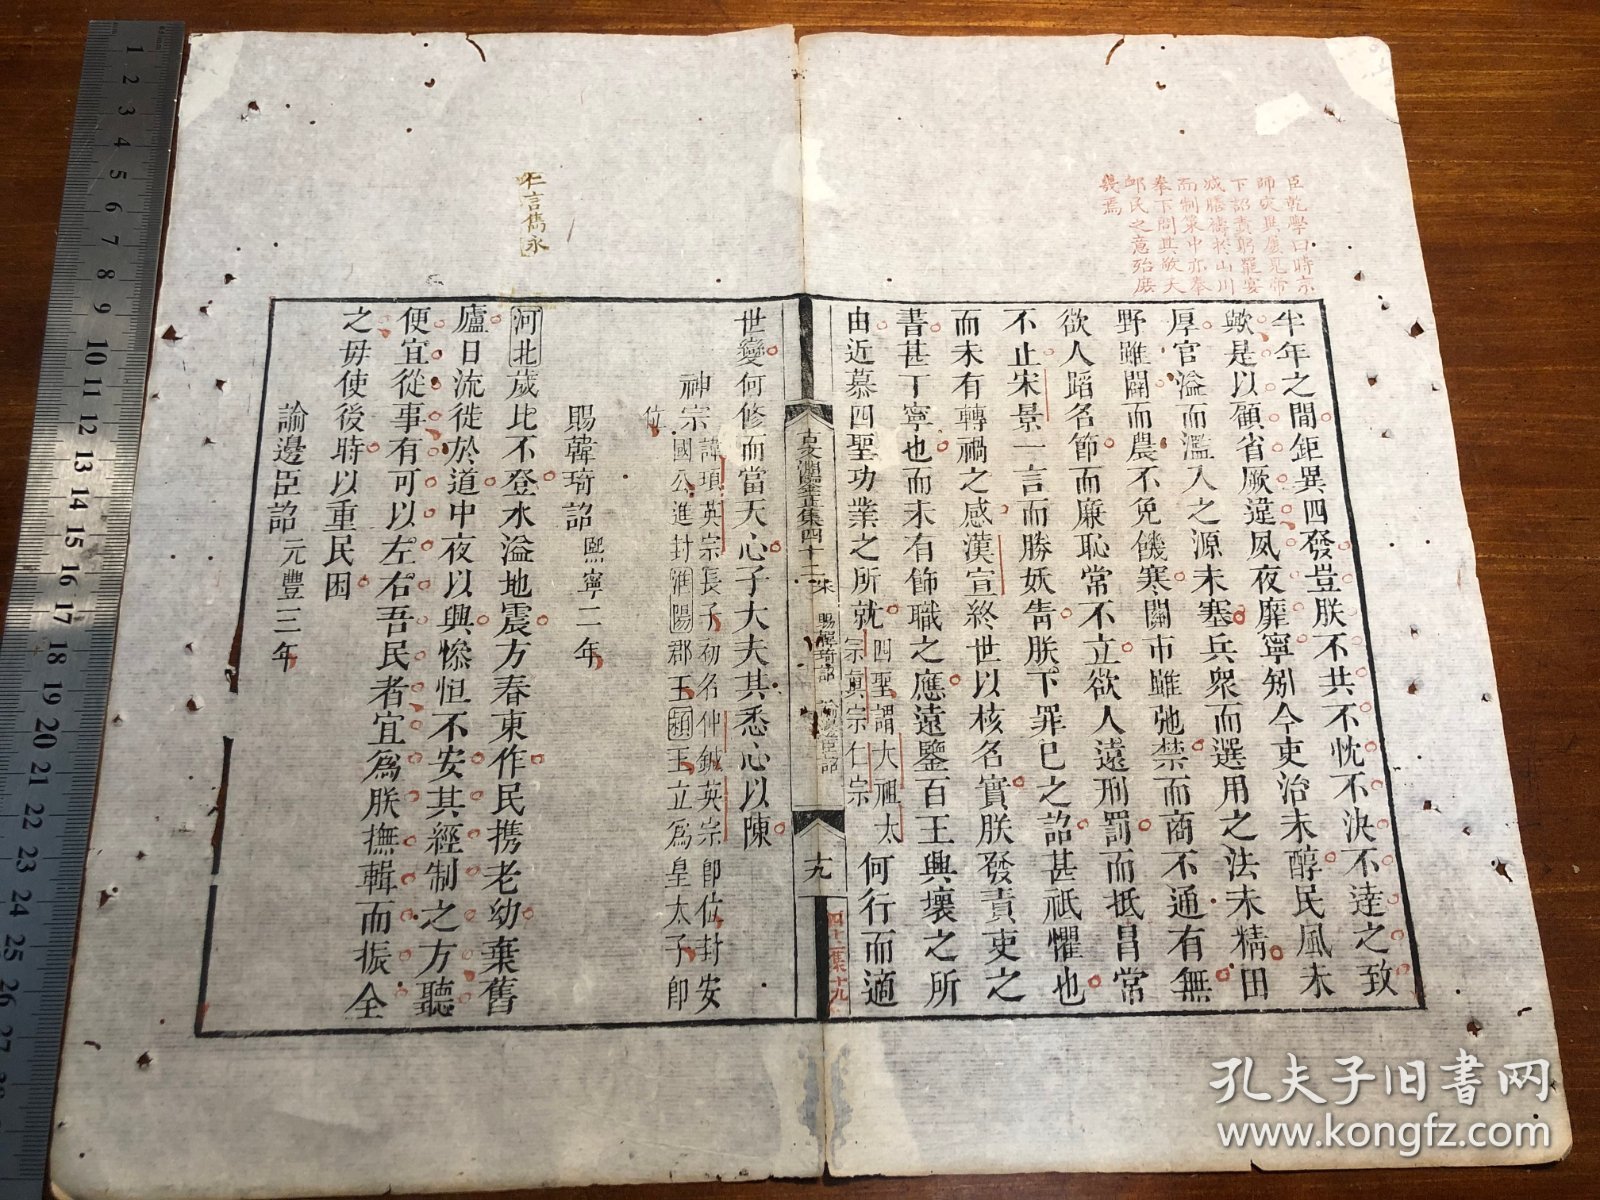 臣乾學曰時京
師火與屢見帝
下詔責躬罷宴
減膳禱於山川
而制策中亦拳
拳下問其敬天
邮民之意殆庶
幾焉
半年之間鉅異四發豈朕不共不忱不決不逹之致
歟是以顧省厥違夙夜靡寧矧今吏治未醇民風未
厚官溢而濫入之源未塞兵衆而選用之法未精田
野雖闢而農不免饑寒關市雖弛禁而商不通有無
欲人蹈名節而廉恥常不立欲人遠刑罰而抵冒常
不止宋景一言而勝妖眚朕下罪已之詔甚祇懼也
而未有轉禍之感漢宣終世以核名實朕發責吏之
書甚丁寧也而未有飾職之應遠鑒百王興壞之所
由近慕四聖功業之所就四聖謂大祖太宗眞宗仁宗何行而適
古文淵鑒正集四十二 宋 賜韓琦詔 諭邊臣詔
十九
四十二集十九
世變何修而當天心子大夫其悉心以陳
神宗諱頊英宗長子初名仲鍼英宗卽位封安
國公進封淮陽郡王潁王立爲皇太子卽
位
賜韓琦詔熙寧二年
年言雋永
河北歲比不登水溢地震方春東作民携老幼棄舊
廬日流徙於道中夜以興慘怛不安其經制之方聽
便宜從事有可以左右吾民者宜爲朕撫輯而振全
之毋使後時以重民困
諭邊臣詔元豐三年
孔夫子旧书网
www.kongfz.com
1
2
3
4
5
6
7
8
9
10
11
12
13
14
15
16
17
18
19
20
21
22
23
24
25
26
27